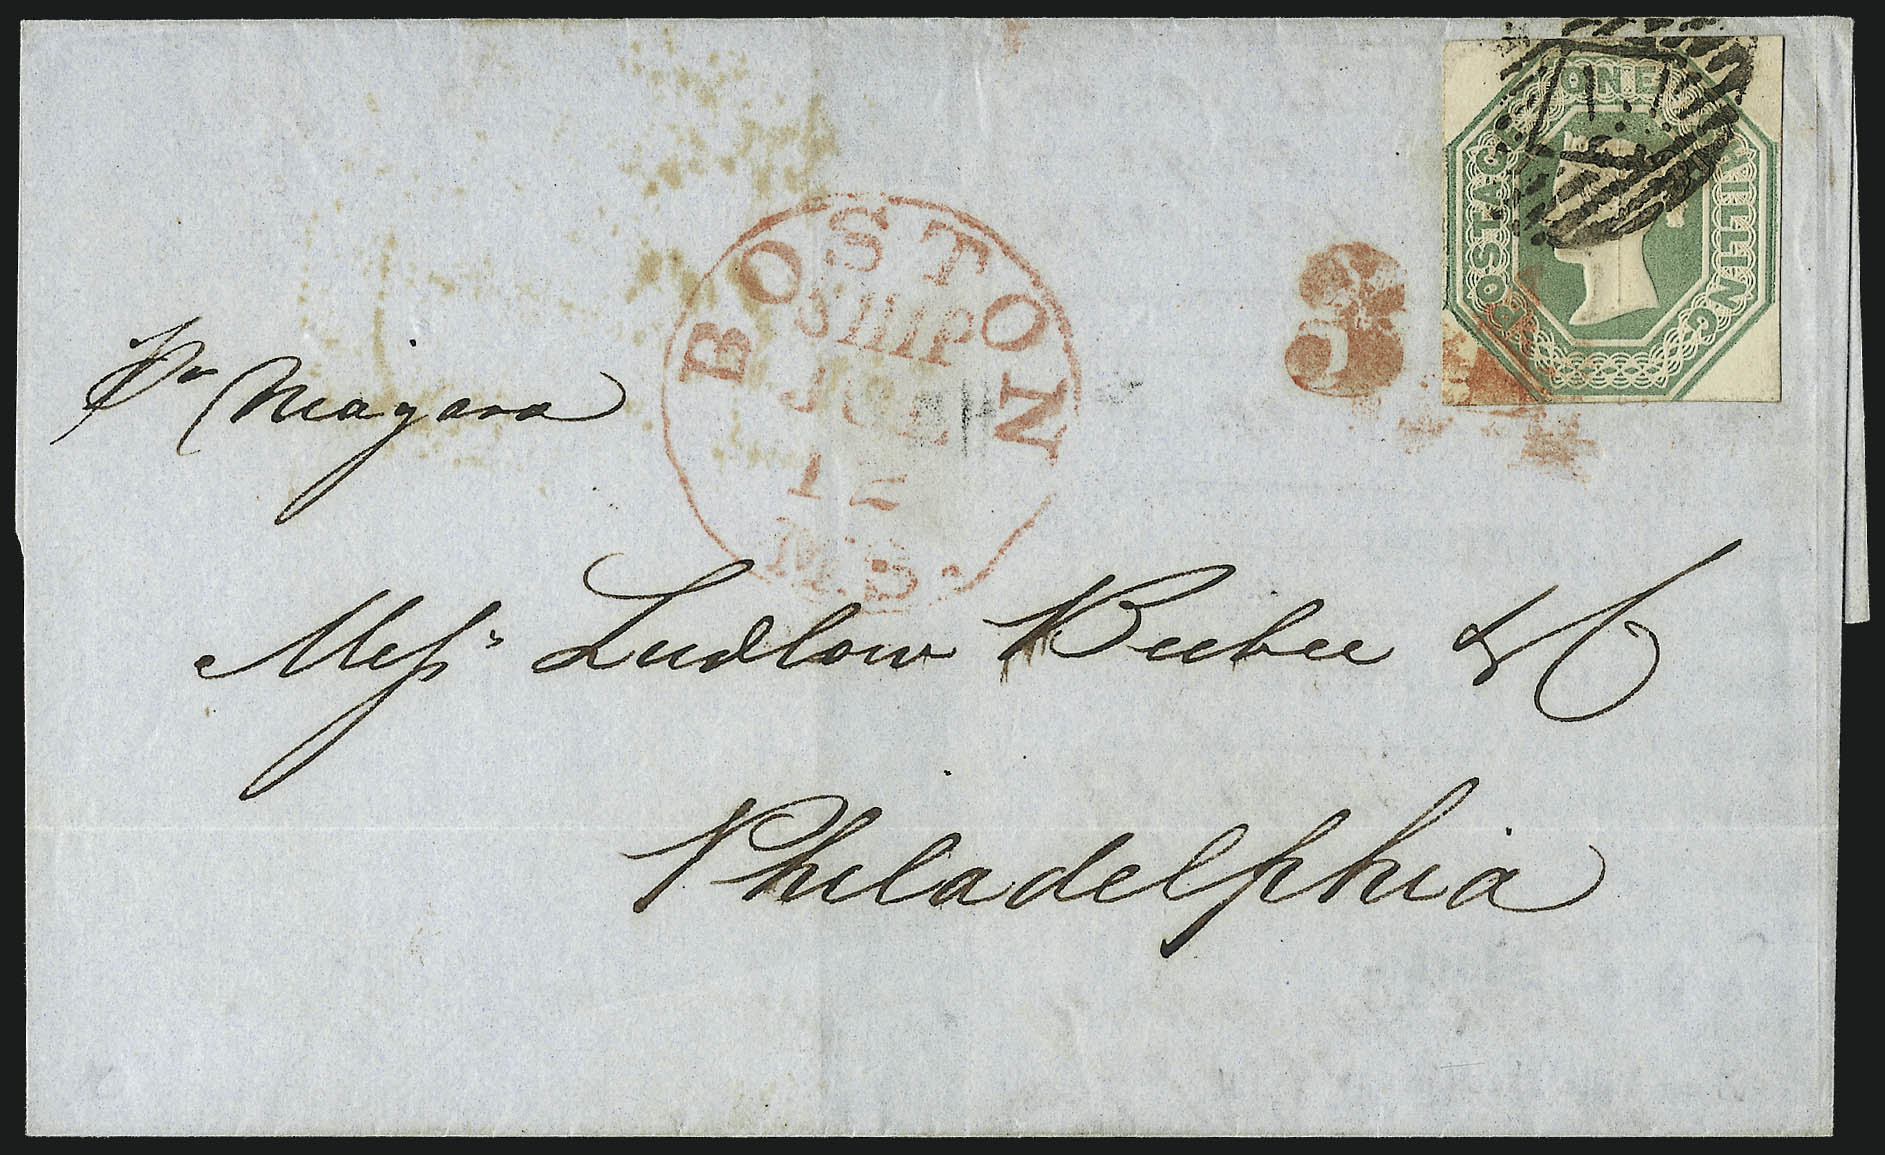 ONE
POSTAGE
SHILLING
BOSTON
SHIP
JUL
12
MS.
34
Pr Niagara
Messrs Ludlow Beebee & C
Philadelphia